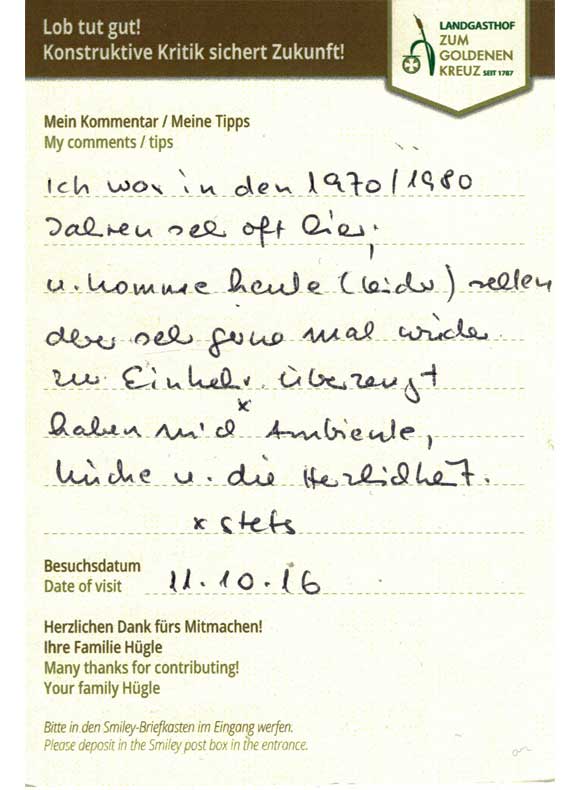 Lob tut gut!
Konstruktive Kritik sichert Zukunft!
LANDGASTHOF
ZUM
GOLDENEN
KREUZ SEIT 1787
Mein Kommentar / Meine Tipps
My comments / tips
Ich war in den 1970/1980
Jahren sehr oft hier,
u. komme heute (leider) selten
aber sehr gerne mal wieder
zur Einkehr. Überzeugt
haben mich x Ambiente,
Küche u. die Herzlichkeit.
x stets
Besuchsdatum
Date of visit 11.10.16
Herzlichen Dank fürs Mitmachen!
Ihre Familie Hügle
Many thanks for contributing!
Your family Hügle
Bitte in den Smiley-Briefkasten im Eingang werfen.
Please deposit in the Smiley post box in the entrance.